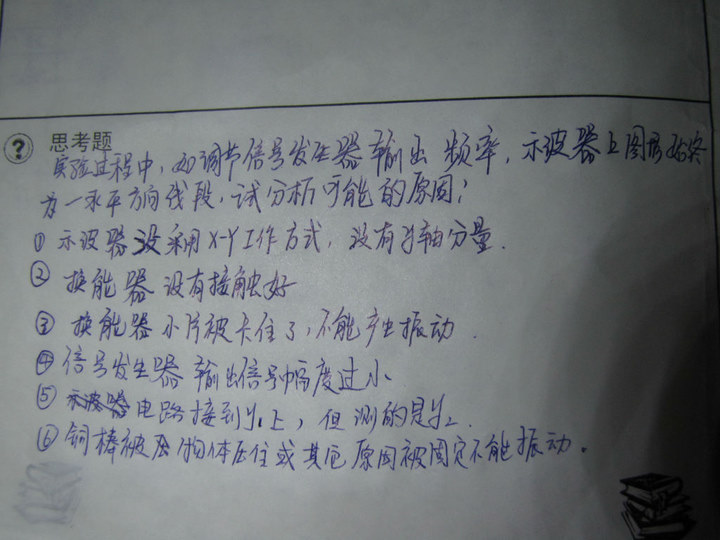 思考题
实验过程中,如调节信号发生器输出频率,示波器上图形始终
为一水平方向线段,试分析可能的原因;
① 示波器没采用X-Y工作方式,没有y轴分量.
② 换能器没有接触好
③ 换能器小片被卡住了,不能产生振动.
④ 信号发生器输出信号幅度过小
⑤ 电路接到y₁上,但测的是y₂.
⑥ 铜棒被物体压住或其它原因被固定不能振动.